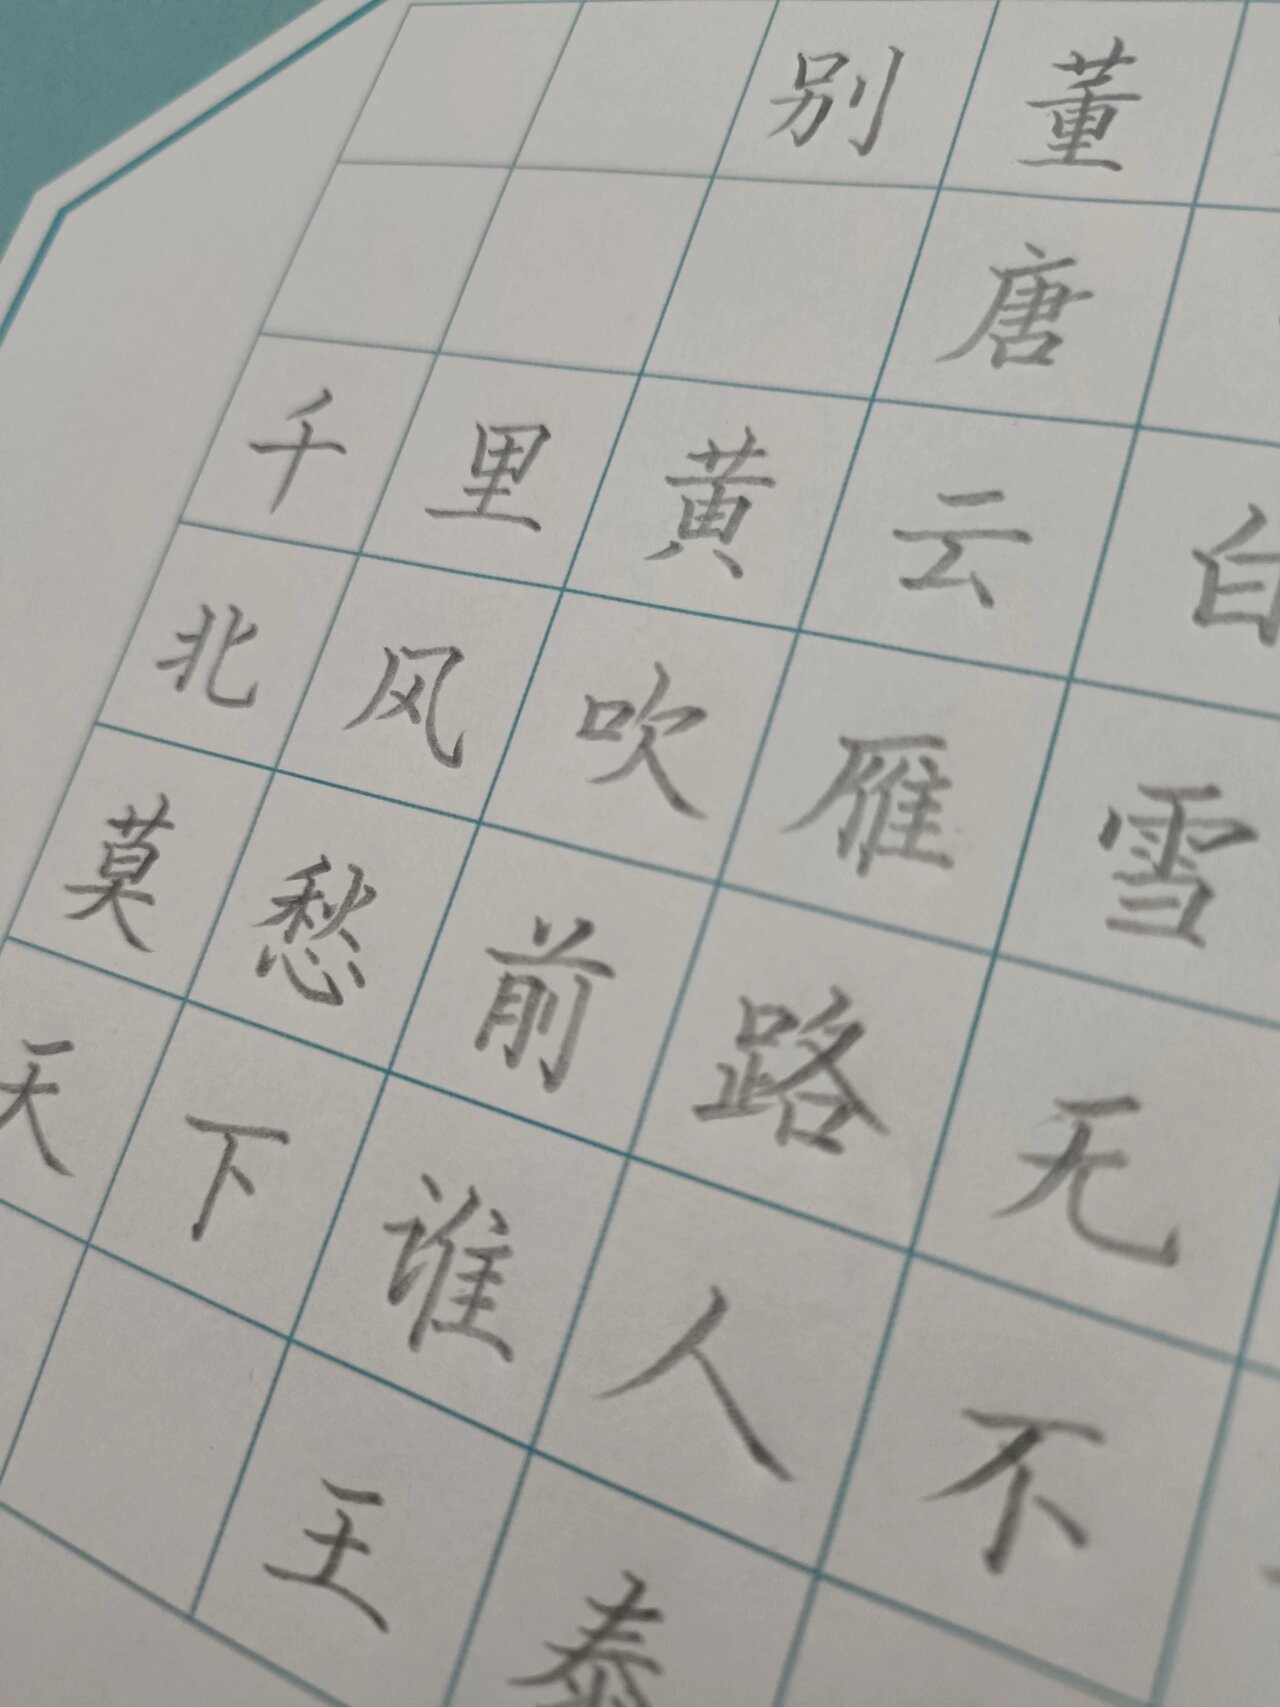 别董
唐
千里黄云白
北风吹雁雪
莫愁前路无
天下谁人不
王泰